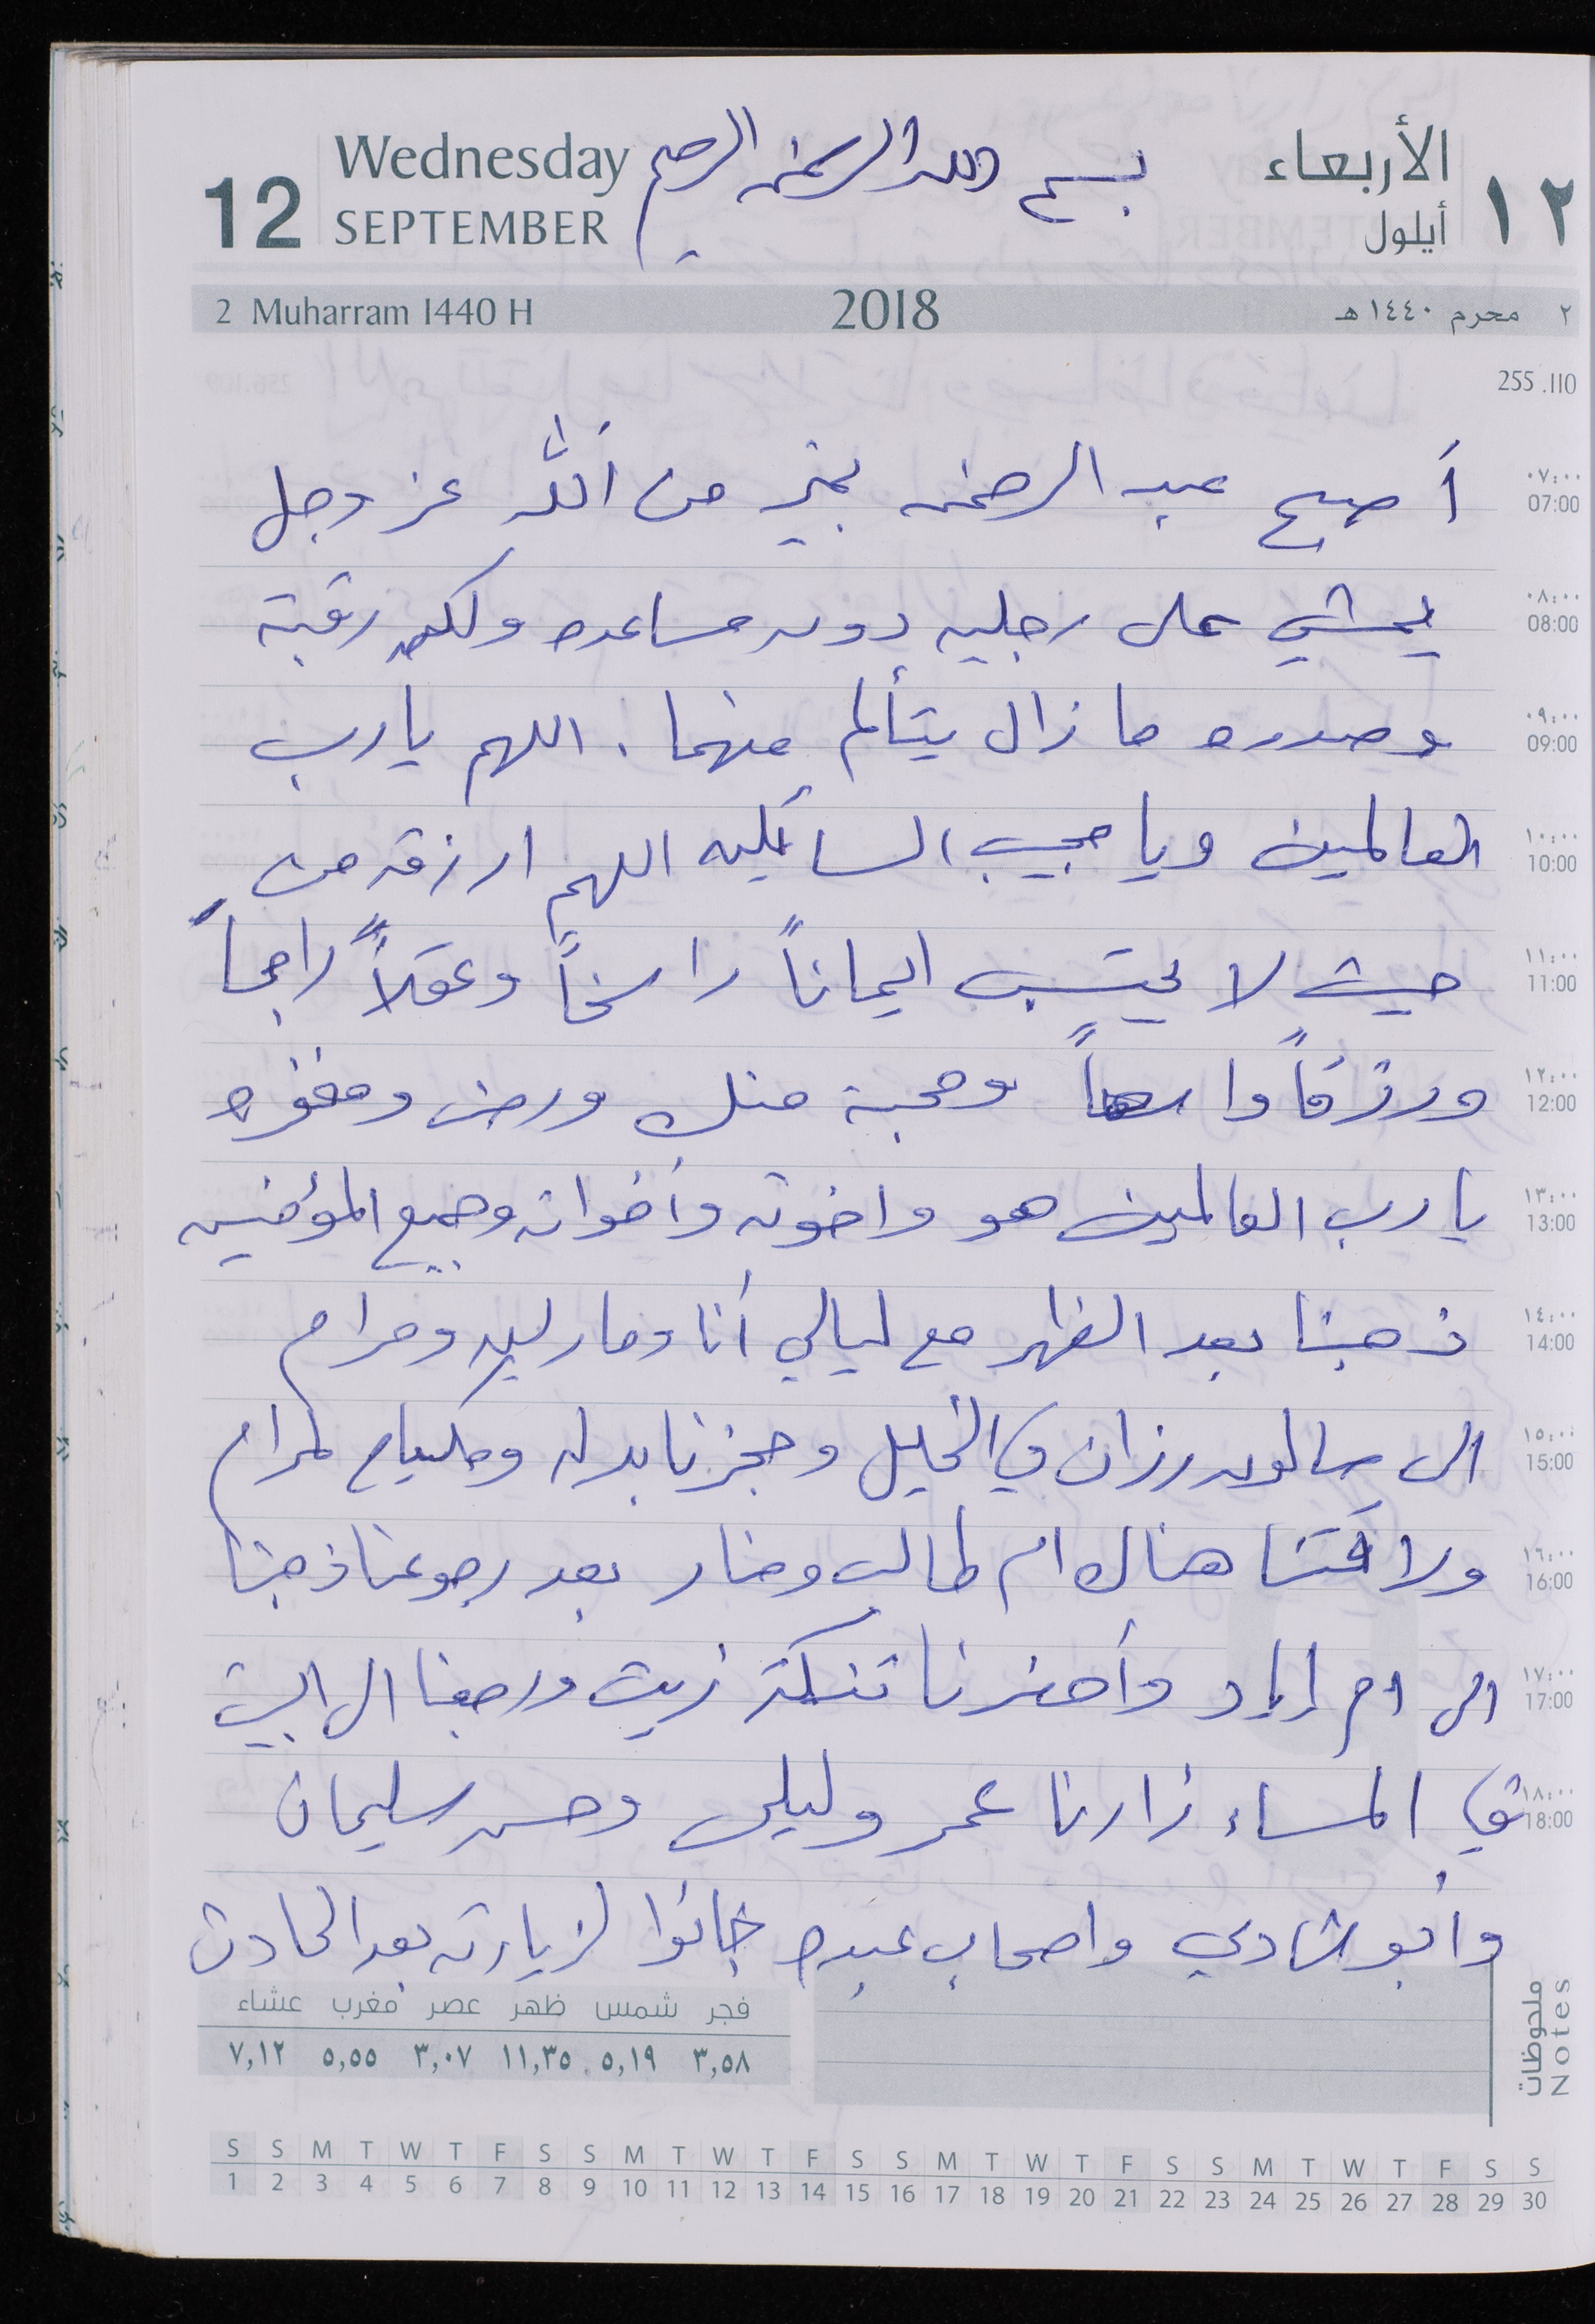 Wednesday بسم الله الرحمن الرحيم الأربعاء
12 SEPTEMBER أيلول ١٢
2 Muharram 1440 H 2018 ٢ محرم ١٤٤٠ هـ
255 .110
٠٧:٠٠ أصبح عبد الرحمن بخير من الله عز وجل
07:00
٠٨:٠٠ يمشي على رجليه دون مساعده ولكن رقبته
08:00
٠٩:٠٠ وصدره ما زال يتألم منهما. اللهم يارب
09:00
١٠:٠٠ العالمين ويا مجيب السائلين اللهم ارزقه من
10:00
١١:٠٠ حيث لا يحتسب ايماناً راسخاً وعقلاً راجحاً
11:00
١٢:٠٠ ورزقاً واسعاً ومحبة منك ورضى ومغفره
12:00
١٣:٠٠ يارب العالمين هو واخوته وأخواته وجميع المؤمنين
13:00
١٤:٠٠ ذهبنا بعد الظهر مع ليالي أنا ومارلين ومرام
14:00
١٥:٠٠ الى صالون رزان في الخليل وحجزنا بدله ومكياج لمرام
15:00
١٦:٠٠ ولاقتنا هناك ام طالب ومنار بعد رجوعنا ذهبنا
16:00
١٧:٠٠ الى ام إياد وأحضرنا تنكة زيت ورجعنا الى البيت
17:00
١٨:٠٠ في المساء زارنا عمر وليلى وحسن سليمان
18:00
وأبو شادي واصحاب عبده جائوا لزيارته بعد الحادث
ملحوظات Notes
فجر شمس ظهر عصر مغرب عشاء
٣,٥٨ ٥,١٩ ١١,٣٥ ٣,٠٧ ٥,٥٥ ٧,١٢
S S M T W T F S S M T W T F S S M T W T F S S M T W T F S S
1 2 3 4 5 6 7 8 9 10 11 12 13 14 15 16 17 18 19 20 21 22 23 24 25 26 27 28 29 30